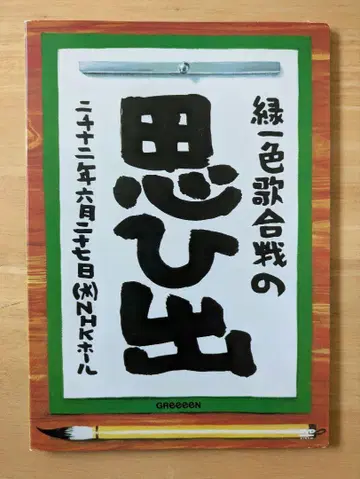 緑一色歌合戦の
思ひ出
二千十二年六月二十七日(水)NHKホール
GReeeeN